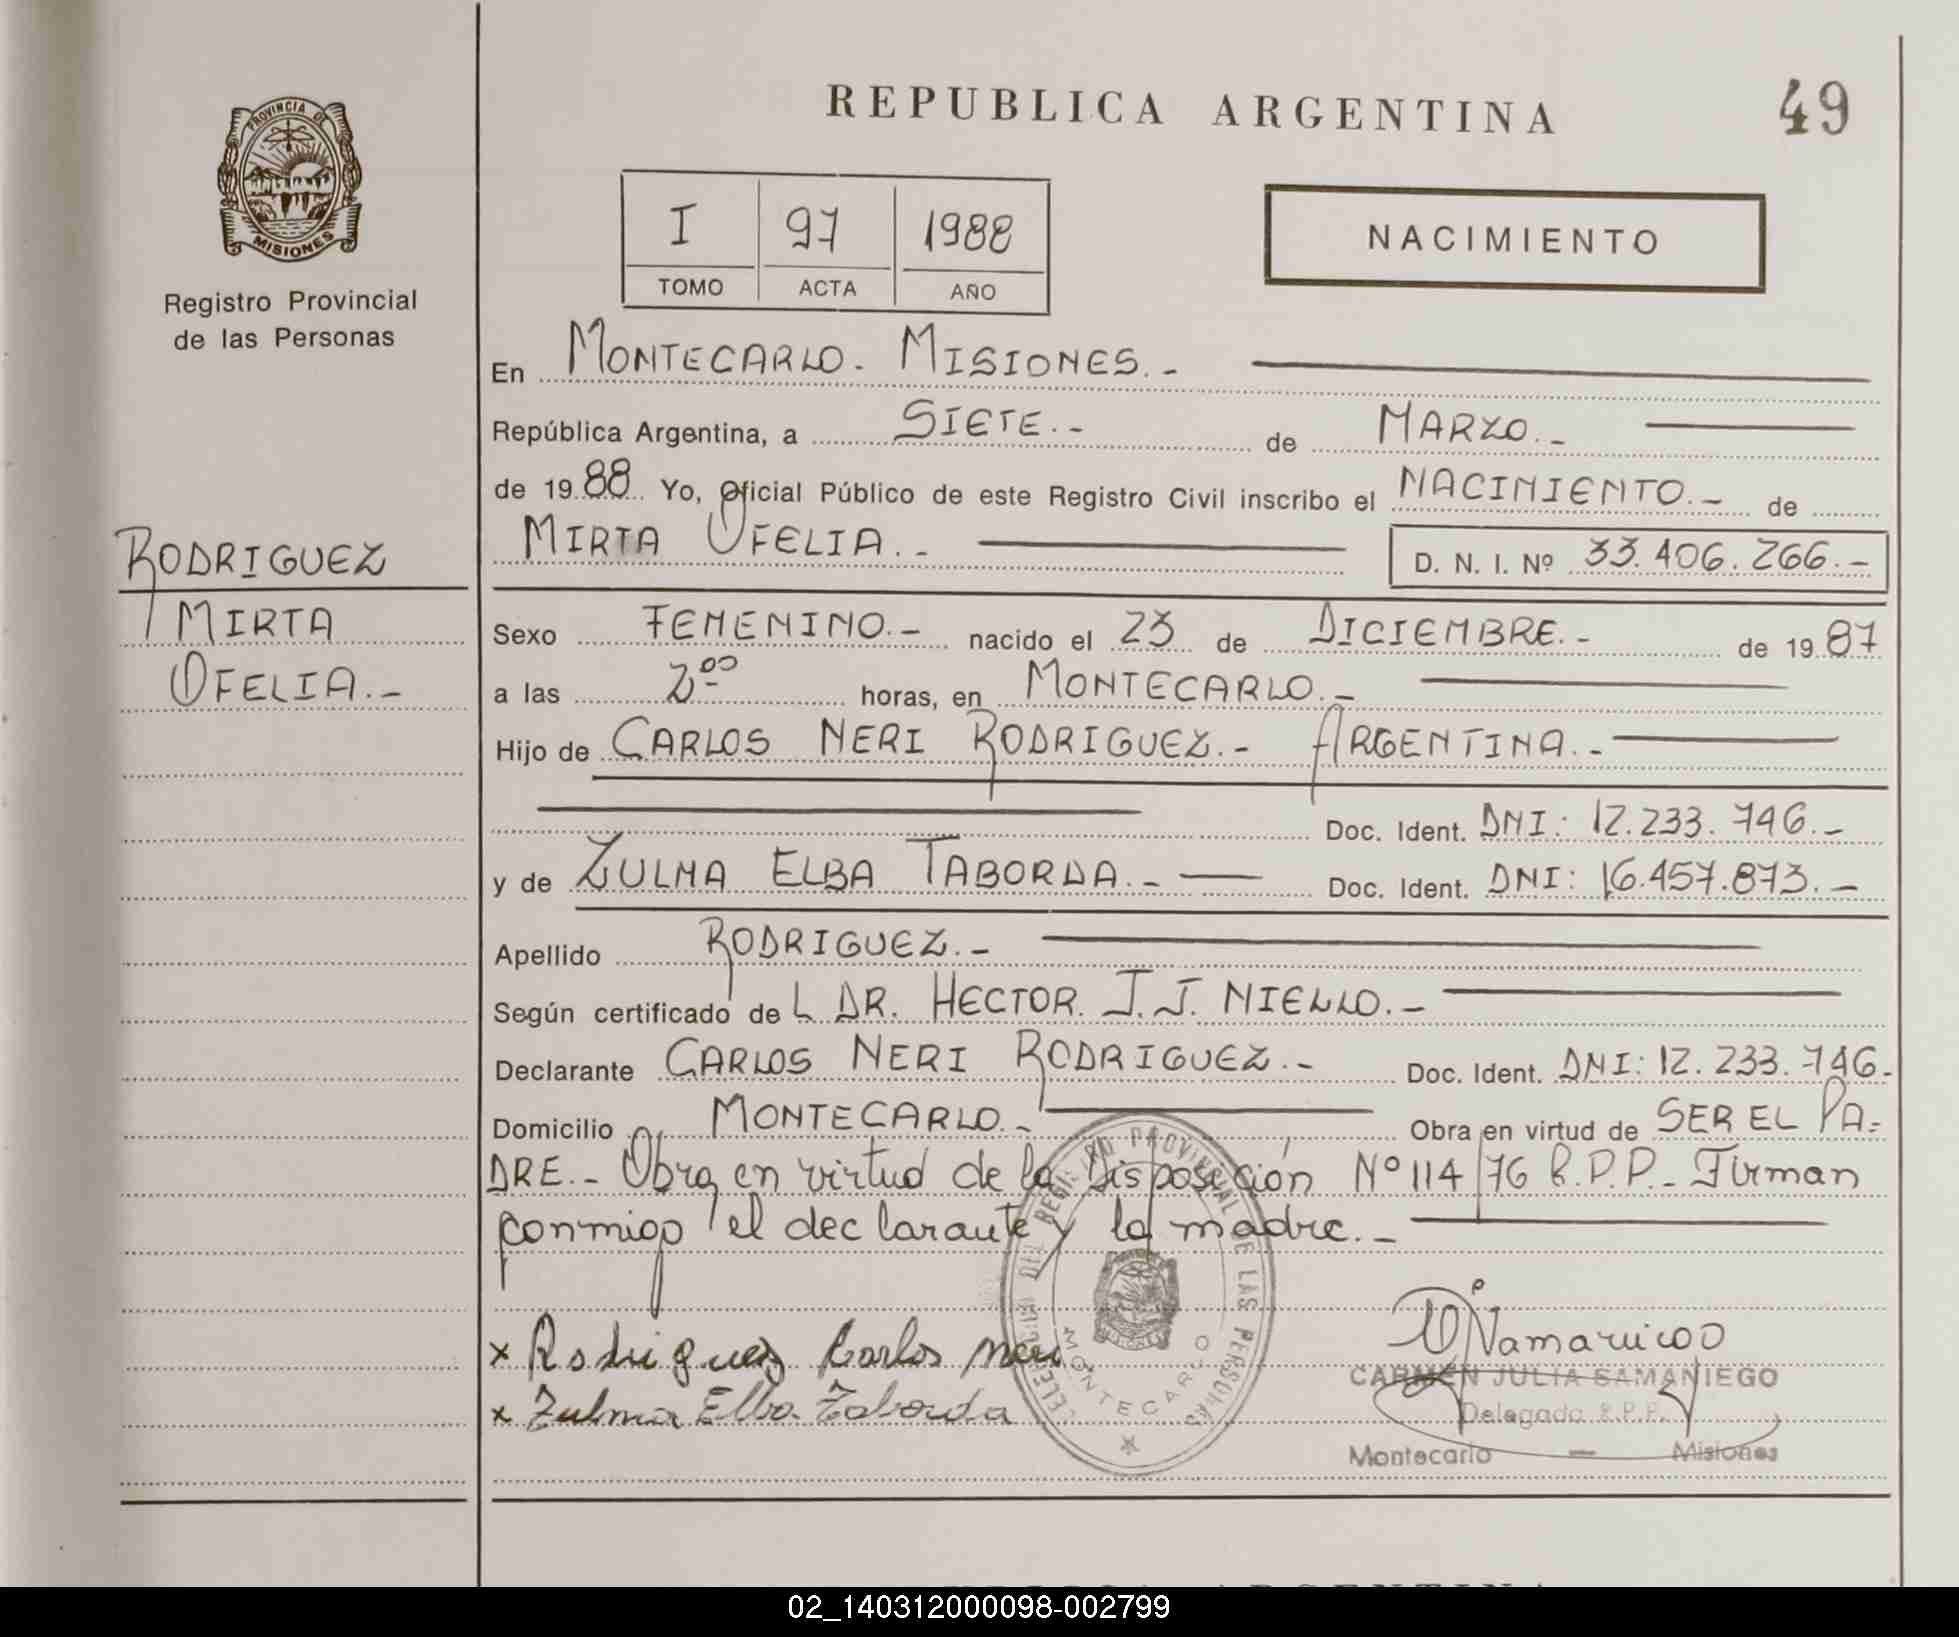 REPUBLICA ARGENTINA
49
PROVINCIA DE
MISIONES
Registro Provincial
de las Personas
I 97 1988
TOMO ACTA AÑO
NACIMIENTO
En MONTECARLO. MISIONES.-
República Argentina, a SIETE.- de MARZO.-
de 1988 Yo, Oficial Público de este Registro Civil inscribo el NACIMIENTO.- de
MIRTA OFELIA.- D. N. I. Nº 33.406.266.-
RODRIGUEZ
MIRTA
OFELIA.-
Sexo FEMENINO.- nacido el 23 de DICIEMBRE.- de 1987
a las 2°° horas, en MONTECARLO.-
Hijo de CARLOS NERI RODRIGUEZ.- ARGENTINA.-
Doc. Ident. DNI: 12.233.746.-
y de ZULMA ELBA TABORDA.- Doc. Ident. DNI: 16.457.873.-
Apellido RODRIGUEZ.-
Según certificado de L DR. HECTOR J.J. NIELLO.-
Declarante CARLOS NERI RODRIGUEZ.- Doc. Ident. DNI: 12.233.746.
Domicilio MONTECARLO.- Obra en virtud de SER EL PA-
DRE.- Obra en virtud de la Disposición Nº 114/76 R.P.P.- Firman
conmigo el declarante y la madre.-
x Rodriguez Carlos Neri
x Zulma Elba Taborda
REGISTRO PROVINCIAL DE LAS PERSONAS
MONTECARLO
CARMEN JULIA SAMANIEGO
Delegada R.P.P.
Montecarlo — Misiones
02_140312000098-002799